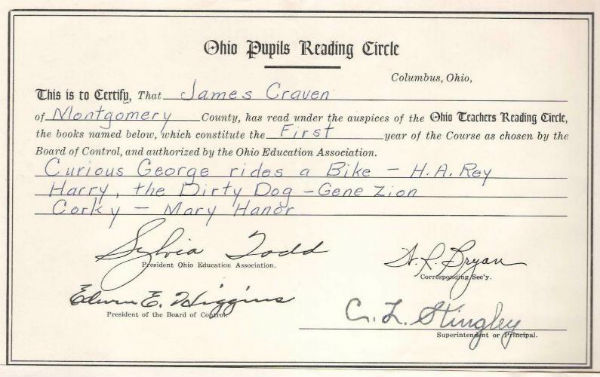 Ohio Pupils Reading Circle
Columbus, Ohio,
This is to Certify, That James Craven
of Montgomery County, has read under the auspices of the Ohio Teachers Reading Circle,
the books named below, which constitute the First year of the Course as chosen by the
Board of Control, and authorized by the Ohio Education Association.
Curious George rides a Bike - H.A. Rey
Harry, the Dirty Dog - Gene Zion
Corky - Mary Hanor
Sylvia Todd
President Ohio Education Association.
W. R. Bryan
Corresponding Sec'y.
Edwin E. Higgins
President of the Board of Control.
C. L. Stingley
Superintendent or Principal.